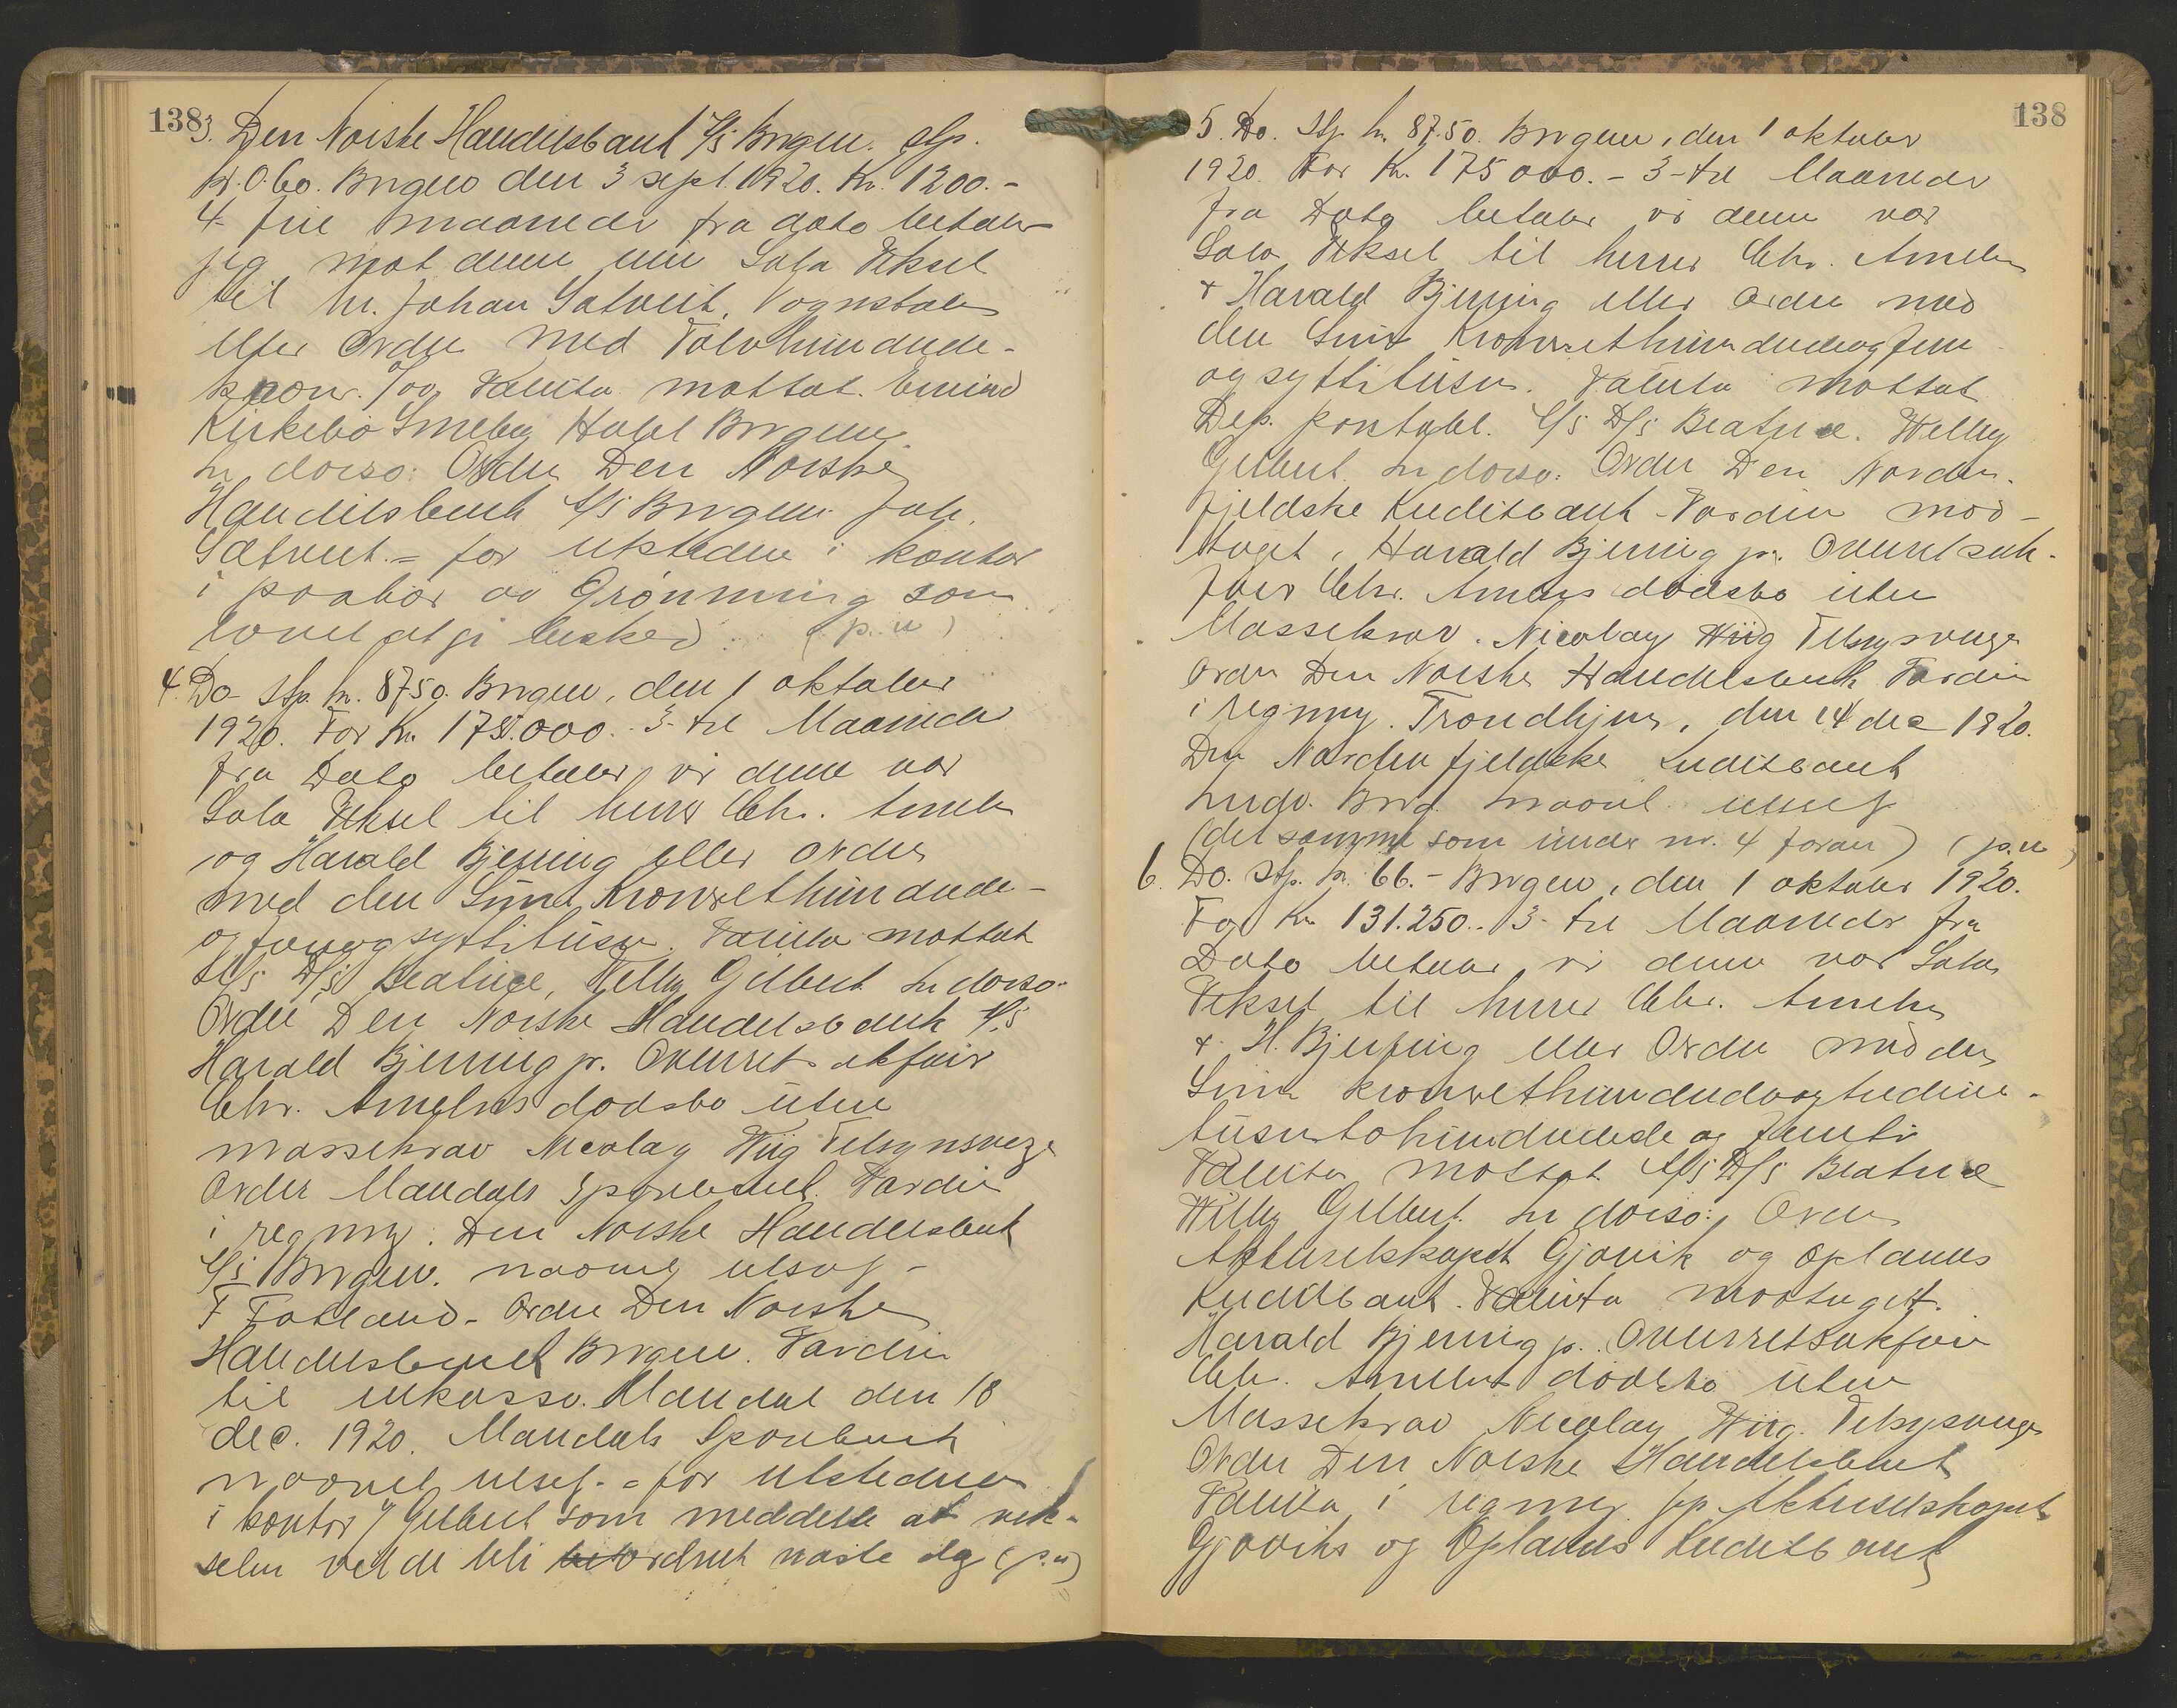 138
3. Den Norske Handelsbank A/S Bergen. stp.
kr. 0.60. Bergen den 3 sept. 1920. Kr. 1200.-
4 fire maaneder fra dato betaler
jeg mot denne min Sola Veksel
til hr. Johan Satveit, Vognstølen
eller Ordre med Tolvhundrede-
kroner. /00 Valuta mottat. Emind
Kirkebø Smeby Hotel Bergen.
In dorso: Ordre Den Norske
Handelsbank A/S Bergen Joh.
Satveit. - for utstederen i kontor
i paahør av Grønning som
lovet at gi besked. (p.u)
4. Do stp. kr. 87.50. Bergen, den 1 oktober
1920. For Kr. 175.000. - 3 - tre Maaneder
fra Dato betaler vi denne vor
Sola Veksel til herrer Chr. Ameln
og Harald Bjerring eller ordre
med den Sum Kroner ethundrede-
og femogsyttitusen. Valuta mottat
A/S D/S Beatrice, Welly Gilbert. In dorso:
Ordre Den Norske Handelsbank A/S
Harald Bjerring pr. Overretssakfører
Chr. Amelns dødsbo uten
massekrav Nicolay Wiig Tilsynsverge
Ordre Mandals Sparebank. Værdien
i regning. Den Norske Handelsbank
A/S Bergen. navnet ulæs. -
F Fotland - Ordre Den Norske
Handelsbank Bergen. Værdien
til inkasso. Mandal den 18
dec. 1920. Mandals Sparebank
navnet ulæs. - for utstederen
i kontor / Gilbert som meddelte at vek-
selen vilde bli ordnet næste dag (p.u)
138
5. Do. Stp. kr. 87.50. Bergen, den 1 oktober
1920. For Kr. 175000. - 3 - tre Maaneder
fra Dato betaler vi denne vor
Sola Veksel til herrer Chr. Ameln
& Harald Bjerring eller Ordre med
den Sum Kroner ethundredeogfem
ogsyttitusen. Valuta mottat
Dep. A/S D/S Beatrice. Welly
Gilbert. In dorso: Ordre Den Norden-
fjeldske Kreditbank - Værdien mod-
taget, Harald Bjerring pr. Overretssak-
fører Chr. Amelns dødsbo uten
Massekrav. Nicolay Wiig Tilsynsverge
Ordre Den Norske Handelsbank Værdien
i regning. Trondhjem, den 14 dec 1920.
Den Nordenfjeldske Kreditbank
navnet ulæs
(det samme som under nr. 4 foran) (p.u)
6. Do. Stp. kr. 66. - Bergen, den 1 oktober 1920.
For Kr. 131.250. - 3 - tre Maaneder fra
Dato betaler vi denne vor Sola
Veksel til herrer Chr. Ameln
& H. Bjerring eller Ordre med den
Sum kroner ethundredeogtredive-
tusentohundrede og femti
Valuta mottat A/S D/S Beatrice
Welly Gilbert. In dorso: Ordre
Aktieselskapet Gjøvik og Oplands
Kreditbank. Valuta modtaget.
Harald Bjerring pr. Overretssakfører
Chr. Amelns dødsbo uten
Massekrav Nicolay Wiig. Tilsynsverge
Ordre Den Norske Handelsbank
Valuta i regning pp. Aktieselskapet
Gjøviks og Oplands Kreditbank